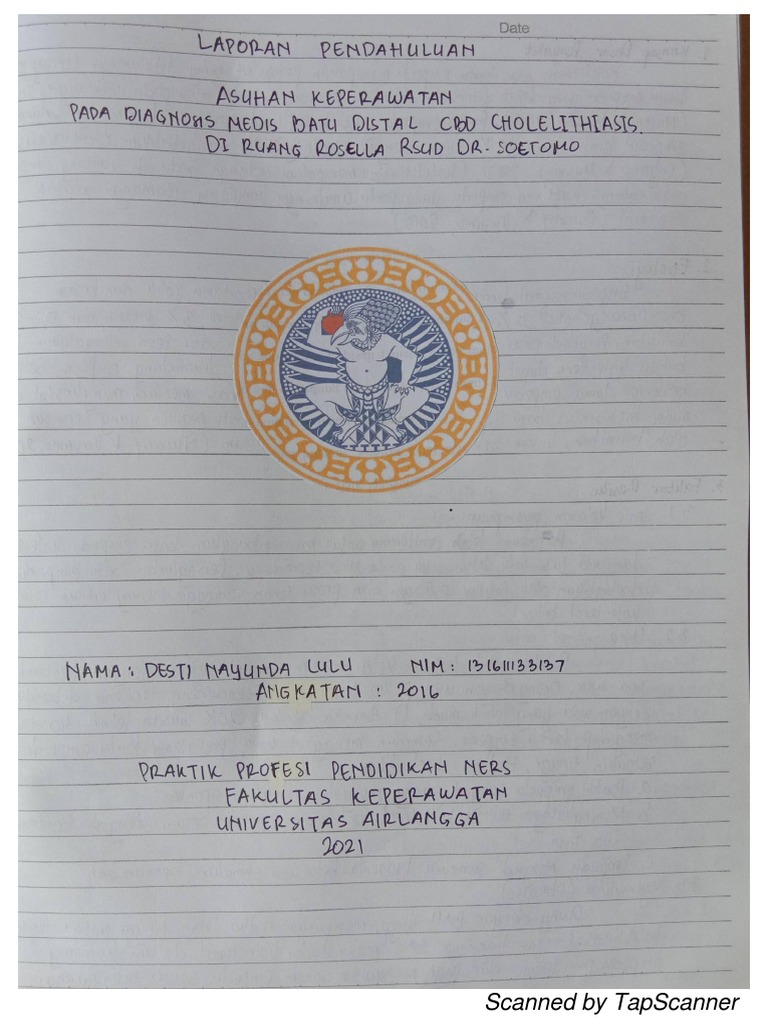 Date
LAPORAN PENDAHULUAN
ASUHAN KEPERAWATAN
PADA DIAGNOSIS MEDIS BATU DISTAL CBD CHOLELITHIASIS.
DI RUANG ROSELLA RSUD DR. SOETOMO
NAMA : DESTI NAYUNDA LULU NIM : 131611133137
ANGKATAN : 2016
PRAKTIK PROFESI PENDIDIKAN NERS
FAKULTAS KEPERAWATAN
UNIVERSITAS AIRLANGGA
2021
Scanned by TapScanner